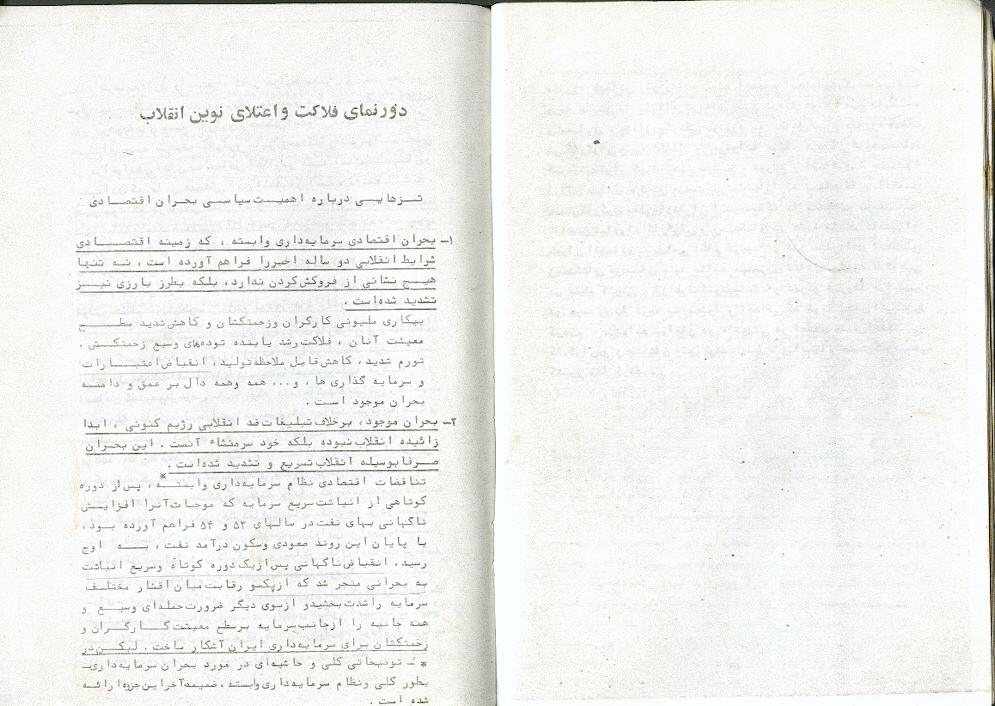 دورنمای فلاکت و اعتلای نوین انقلاب
تـزهایـی دربـاره اهمیـت سیـاسـی بحـران اقتصـادی
۱- بحران اقتصادی سرمایه‌داری وابسته ، که زمینه اقتصــادی
شرایط انقلابی دو ساله اخیررا فراهم آورده است ، نـه تنهـا
هیـچ نشانی از فروکش‌کردن ندارد، بلکه بطرز بارزی نیــز
تشدید شده‌است .
بیکاری ملیونی کارگران وزحمتکشان و کاهش‌شدید سطــح
معیشت آنان ، فلاکت رشد یابنده توده‌های وسیع زحمتکش ،
تورم شدید، کاهش‌قابل ملاحظه‌تولید، انقباض‌اعتبــارات
و سرمایه گذاری ها ، و... همه وهمه دال بر عمق و دامنـه
بحران موجود است .
۲- بحران موجود، برخلاف تبلیغات ضد انقلابی رژیم کنونی ، ابدا
زائیده انقلاب نبوده بلکه خود سرمنشاء آنست . این بحــران
صـرفا بوسیله انقلاب تسریع و تشدید شده‌است .
تناقضات اقتصادی نظام سرمایه‌داری وابستـه*، پس‌از دوره
کوتاهی از انباشت‌سریع سرمایه که موجبات‌آنرا افزایـش
ناگهانی بهای نفت‌در سالهای ۵۳ و ۵۴ فراهم آورده بـود،
با پایان این روند صعودی وسکون درآمد نفت ، بــه اوج
رسید. انقباض‌ناگهانی پس‌ازیک‌دوره کوتاه وسریع انباشت
به بحرانی منجر شد که ازیکسو رقابت‌میان اقشار مختلـف
سرمایه راشدت‌بخشیدو ازسوی دیگر ضرورت‌حمله‌ای وسیـع و
همه جانبه را ازجانب‌سرمایه برسطح معیشت‌کــارگــران و
زحمتکشان برای سرمایه‌داری ایران آشکار ساخت . لیکـن‌در
* - توضیحاتی کلی و حاشیه‌ای در مورد بحران سرمایه‌داری-
بطور کلی ونظام سرمایه‌داری‌وابسته ، ضمیمه‌آخراین‌جزوه‌ارائـه
شده است .